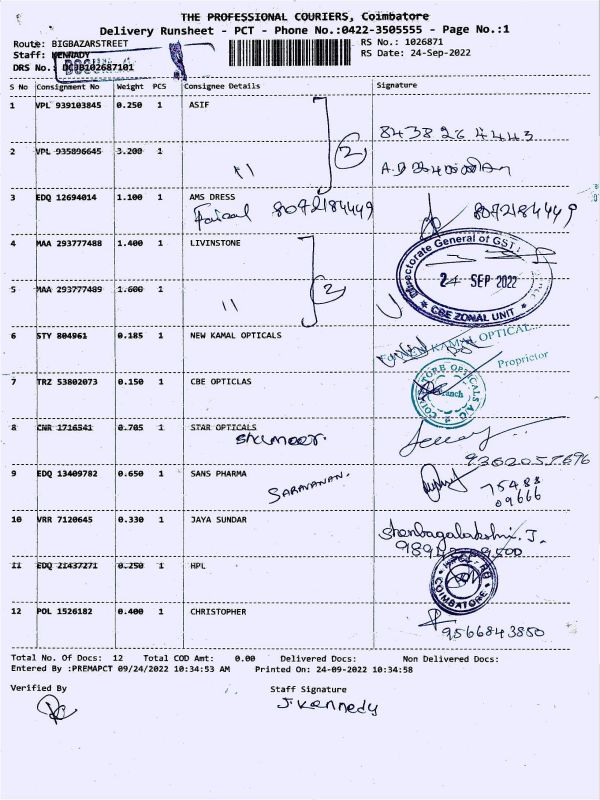 THE PROFESSIONAL COURIERS, Coimbatore
Delivery Runsheet - PCT - Phone No.:0422-3505555 - Page No.:1
Route: BIGBAZARSTREET RS No.: 1026871
Staff: KENNADY RS Date: 24-Sep-2022
DRS No.: DC3B102687101
S No Consignment No Weight PCS Consignee Details Signature
1 VPL 939103845 0.250 1 ASIF
2 8438 26 4443
2 VPL 935896645 3.200 1
11
3 EDQ 12694014 1.100 1 AMS DRESS
Faisal 8072184449 8072184449
4 MAA 293777488 1.400 1 LIVINSTONE
Directorate General of GST
24 SEP 2022
CBE ZONAL UNIT
5 MAA 293777489 1.600 1
11 2
6 STY 804961 0.185 1 NEW KAMAL OPTICALS
KAMAL OPTICAL
Proprietor
7 TRZ 53802073 0.150 1 CBE OPTICLAS
8 CNR 1716541 0.705 1 STAR OPTICALS
Shameer.
9362057696
9 EDQ 13409782 0.650 1 SANS PHARMA
SARAVANAN. 75488
09666
10 VRR 7120645 0.330 1 JAYA SUNDAR
Shenbagalakshmi. J.
11 EDQ 21437271 0.250 1 HPL
COIMBATORE
12 POL 1526182 0.400 1 CHRISTOPHER
9566843850
Total No. Of Docs: 12 Total COD Amt: 0.00 Delivered Docs: Non Delivered Docs:
Entered By :PREMAPCT 09/24/2022 10:34:53 AM Printed On: 24-09-2022 10:34:58
Verified By Staff Signature
J. Kennedy